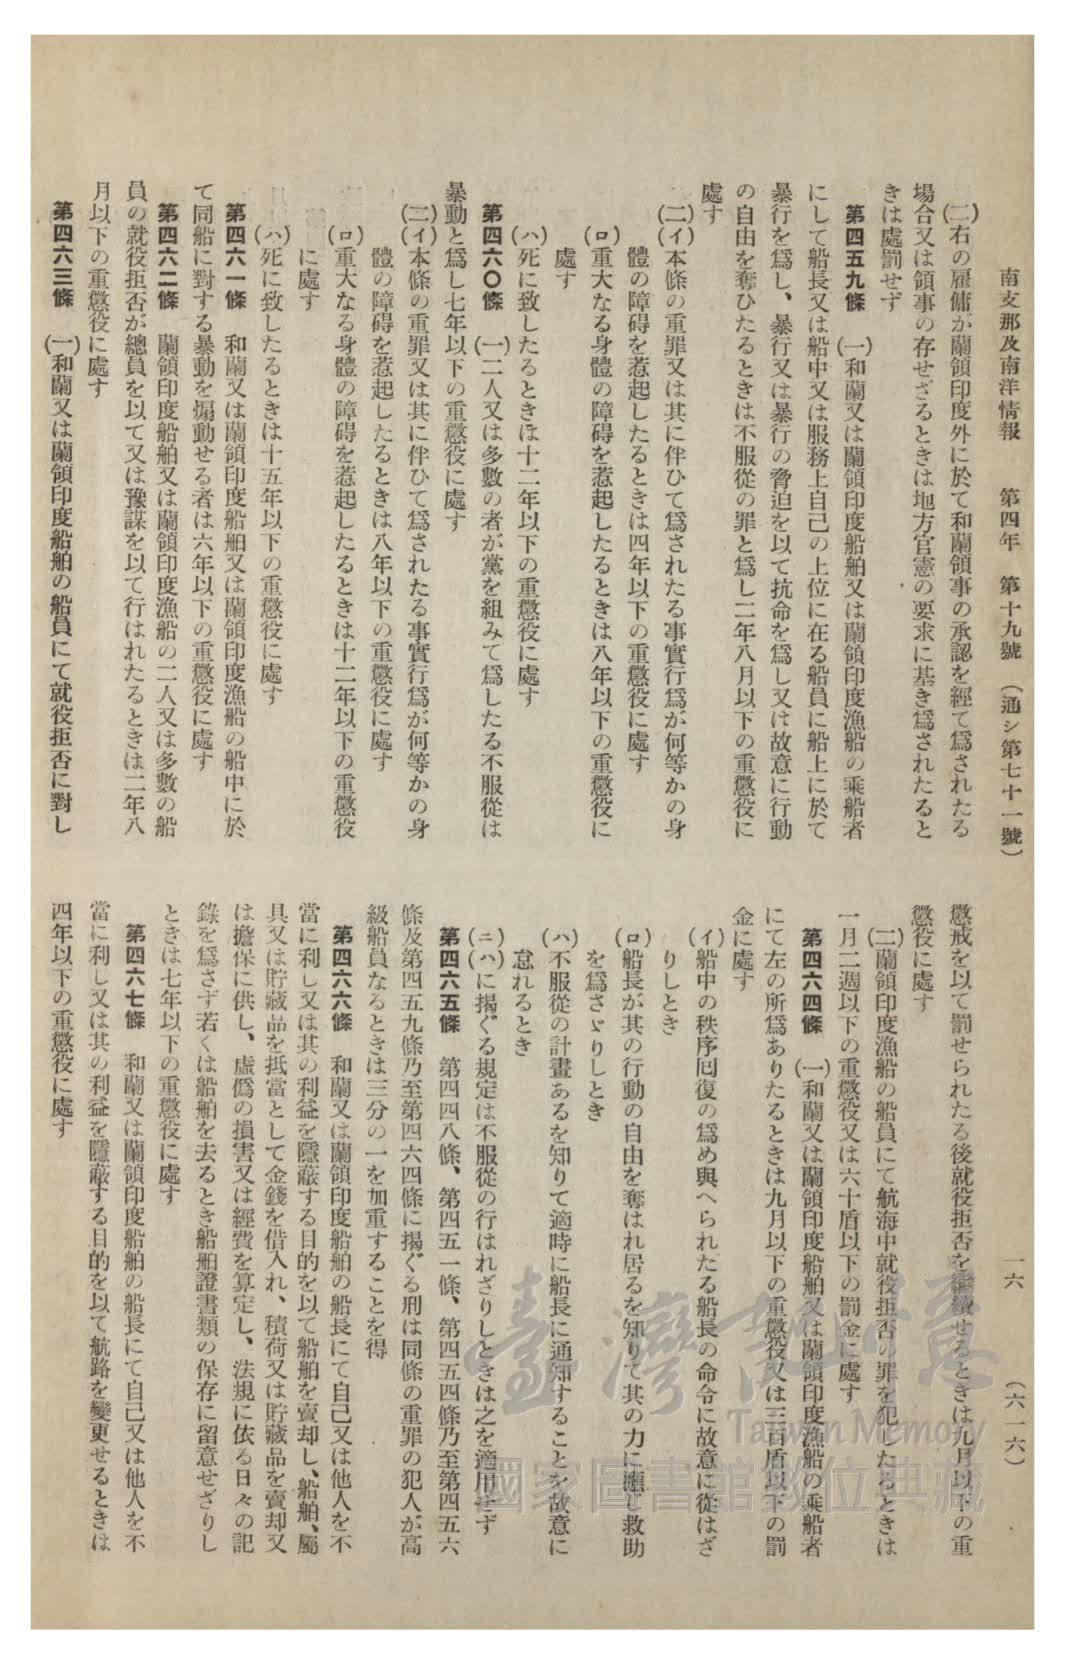 南支那及南洋情報　第四年　第十九號　（通シ第七十一號）
一六　（六一六）
(二)右の雇傭が蘭領印度外に於て和蘭領事の承認を經て爲されたる
場合又は領事の存せざるときは地方官憲の要求に基き爲されたると
きは處罰せず
第四五九條　(一)和蘭又は蘭領印度船舶又は蘭領印度漁船の乘船者
にして船長又は船中又は服務上自己の上位に在る船員に船上に於て
暴行を爲し、暴行又は暴行の脅迫を以て抗命を爲し又は故意に行動
の自由を奪ひたるときは不服從の罪と爲し二年八月以下の重懲役に
處す
(二)(イ)本條の重罪又は其に伴ひて爲されたる事實行爲が何等かの身
體の障碍を惹起したるときは四年以下の重懲役に處す
(ロ)重大なる身體の障碍を惹起したるときは八年以下の重懲役に
處す
(ハ)死に致したるときは十二年以下の重懲役に處す
第四六〇條　(一)二人又は多數の者が黨を組みて爲したる不服從は
暴動と爲し七年以下の重懲役に處す
(二)(イ)本條の重罪又は其に伴ひて爲されたる事實行爲が何等かの身
體の障碍を惹起したるときは八年以下の重懲役に處す
(ロ)重大なる身體の障碍を惹起したるときは十二年以下の重懲役
に處す
(ハ)死に致したるときは十五年以下の重懲役に處す
第四六一條　和蘭又は蘭領印度船舶又は蘭領印度漁船の船中に於
て同船に對する暴動を煽動せる者は六年以下の重懲役に處す
第四六二條　蘭領印度船舶又は蘭領印度漁船の二人又は多數の船
員の就役拒否が總員を以て又は豫謀を以て行はれたるときは二年八
月以下の重懲役に處す
第四六三條　(一)和蘭又は蘭領印度船舶の船員にて就役拒否に對し
懲戒を以て罰せられたる後就役拒否を繼續せるときは九月以下の重
懲役に處す
(二)蘭領印度漁船の船員にて航海中就役拒否の罪を犯したるときは
一月二週以下の重懲役又は六十盾以下の罰金に處す
第四六四條　(一)和蘭又は蘭領印度船舶又は蘭領印度漁船の乘船者
にて左の所爲ありたるときは九月以下の重懲役又は三百盾以下の罰
金に處す
(イ)船中の秩序囘復の爲め與へられたる船長の命令に故意に從はざ
りしとき
(ロ)船長が其の行動の自由を奪はれ居るを知りて其の力に應じ救助
を爲さゞりしとき
(ハ)不服從の計畫あるを知りて適時に船長に通知することを故意に
怠れるとき
(ニ)(ハ)に揭ぐる規定は不服從の行はれざりしときは之を適用せず
第四六五條　第四四八條、第四五一條、第四五四條乃至第四五六
條及第四五九條乃至第四六四條に揭ぐる刑は同條の重罪の犯人が高
級船員なるときは三分の一を加重することを得
第四六六條　和蘭又は蘭領印度船舶の船長にて自己又は他人を不
當に利し又は其の利益を隱蔽する目的を以て船舶を賣却し、船舶、屬
具又は貯藏品を抵當として金錢を借入れ、積荷又は貯藏品を賣却又
は擔保に供し、虛僞の損害又は經費を算定し、法規に依る日々の記
錄を爲さず若くは船舶を去るとき船舶證書類の保存に留意せざりし
ときは七年以下の重懲役に處す
第四六七條　和蘭又は蘭領印度船舶の船長にて自己又は他人を不
當に利し又は其の利益を隱蔽する目的を以て航路を變更せるときは
四年以下の重懲役に處す
臺灣記憶
Taiwan Memory
國家圖書館數位典藏